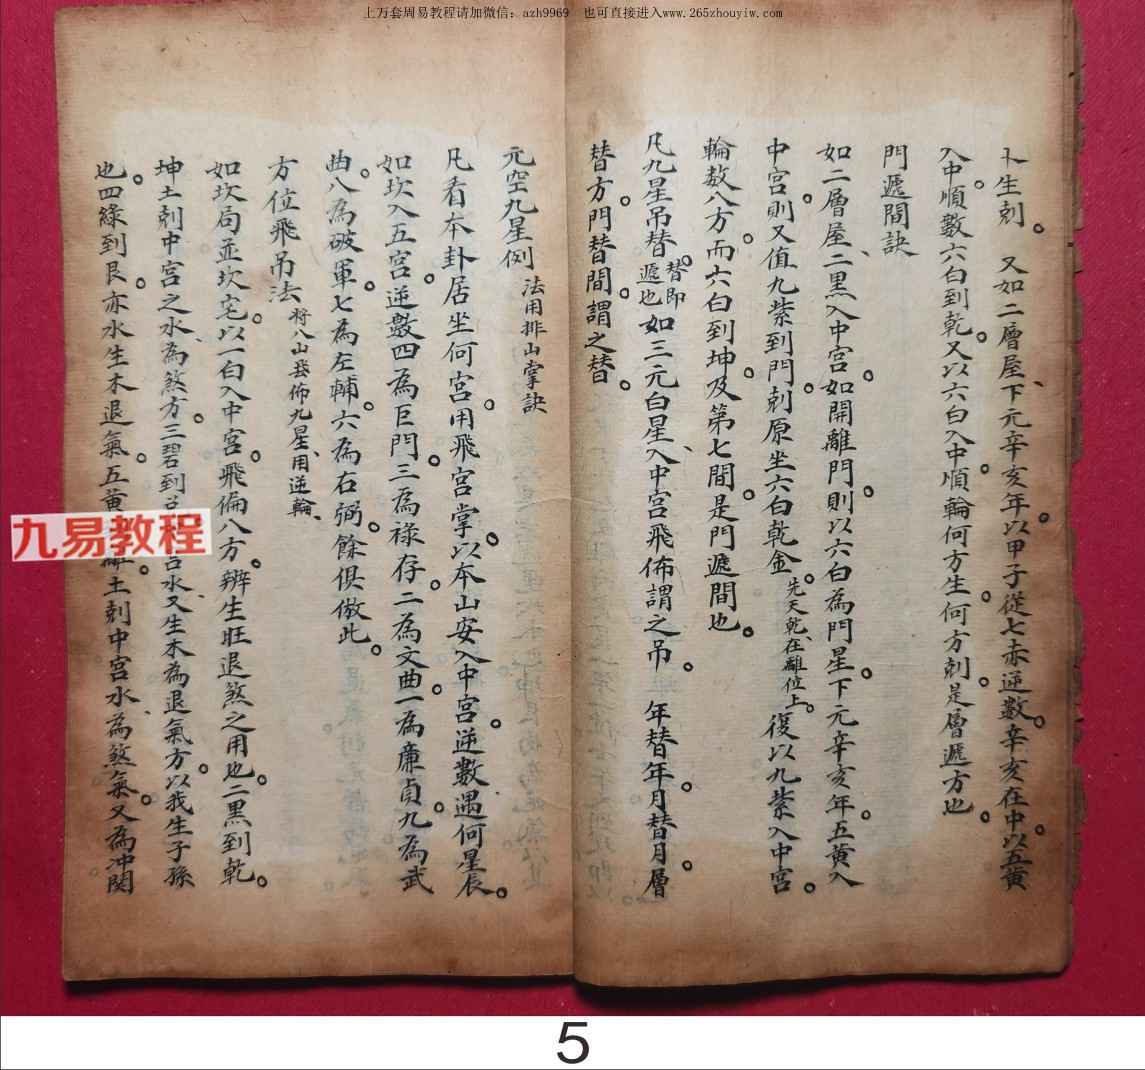 上万套周易教程请加微信：azh9969　也可直接进入www.265zhouyiw.com
卜生剋。　又如二層屋、下元辛亥年。以甲子從七赤逆數。辛亥在中。以五黃
入中。順數六白到乾。又以六白入中。順輪何方生。何方剋。是層遞方也。
門遞間訣
如二層屋、二黑入中宮。如開離門。則以六白為門星。下元辛亥年。五黃入
中宮。則又值九紫到門。剋原坐六白乾金。先天乾、在離位上。復以九紫入中宮。
輪数八方。而六白到坤。及第七間。是門遞間也。
凡九星吊替。替即遞也如三元白星、入中宮飛佈謂之吊。　年替年。月替月。層
替方。門替間。謂之替。
元空九星例　法用排山掌訣
凡看本卦居坐何宮。用飛宮掌。以本山安入中宮。逆數遇何星辰。
如坎入五宮。逆數四為巨門。三為祿存。二為文曲。一為廉貞。九為武
曲。八為破軍。七為左輔。六為右弼。餘俱倣此。
方位飛吊法　将八山 佈九星、用逆輪、
如坎局並坎宅。以一白入中宮。飛偏八方。辨生旺退煞之用也。二黑到乾。
坤土剋中宮之水、為煞方。三碧到 水、又生木為退氣方。以我生子孫
也。四綠到艮。亦水生木退氣。五黃 離。土剋中宮水、為煞氣。又為冲関
九易教程
5